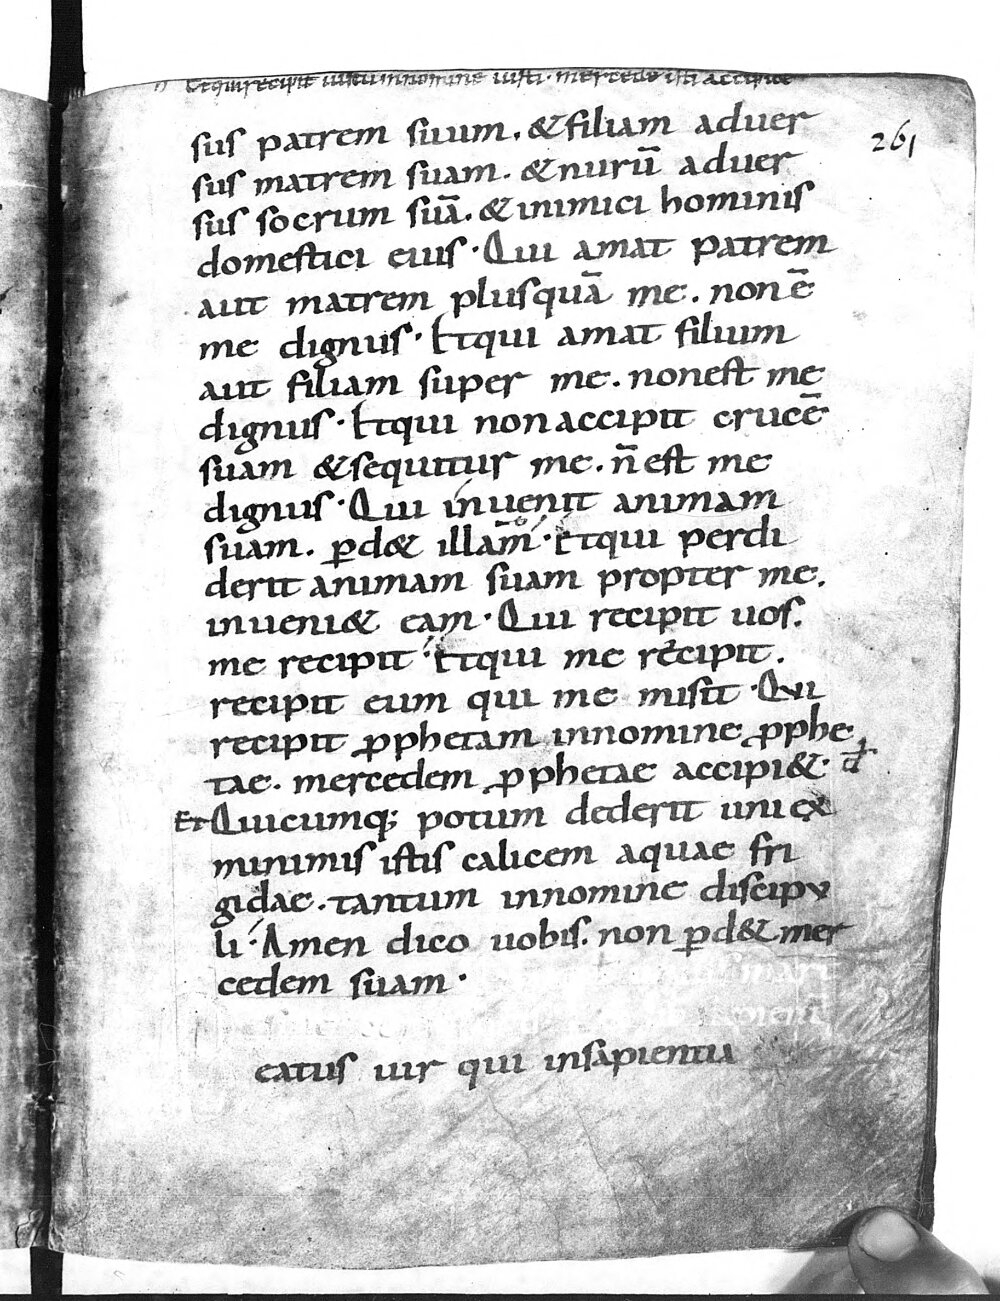 Et qui recipit iustu innomine iusti. mercede isti accipiet
261
sus patrem suum. &filiam aduer
sus matrem suam. &nurū aduer
sus socrum suā. &inimici hominis
domestici eius· Qui amat patrem
aut matrem plusquā me. non ē
me dignus· Etqui amat filium
aut filiam super me. nonest me
dignus· Etqui non accipit crucē
suam &sequitur me. n̄ est me
dignus· Qui inuenit animam
suam. ꝑd& illam· Etqui perdi
derit animam suam propter me.
inueni& eam· Qui recipit uos.
me recipit· Etqui me recipit.
recipit eum qui me misit· Qui
recipit ꝓphetam innomine ꝓphe
tae. mercedem ꝓphetae accipi&·
Et Quicumq; potum dederit uni ex
minimis istis calicem aquae fri
gidae. tantum innomine discipu
li· Amen dico uobis. non ꝑd& mer
cedem suam·
eatus uir qui insapientia